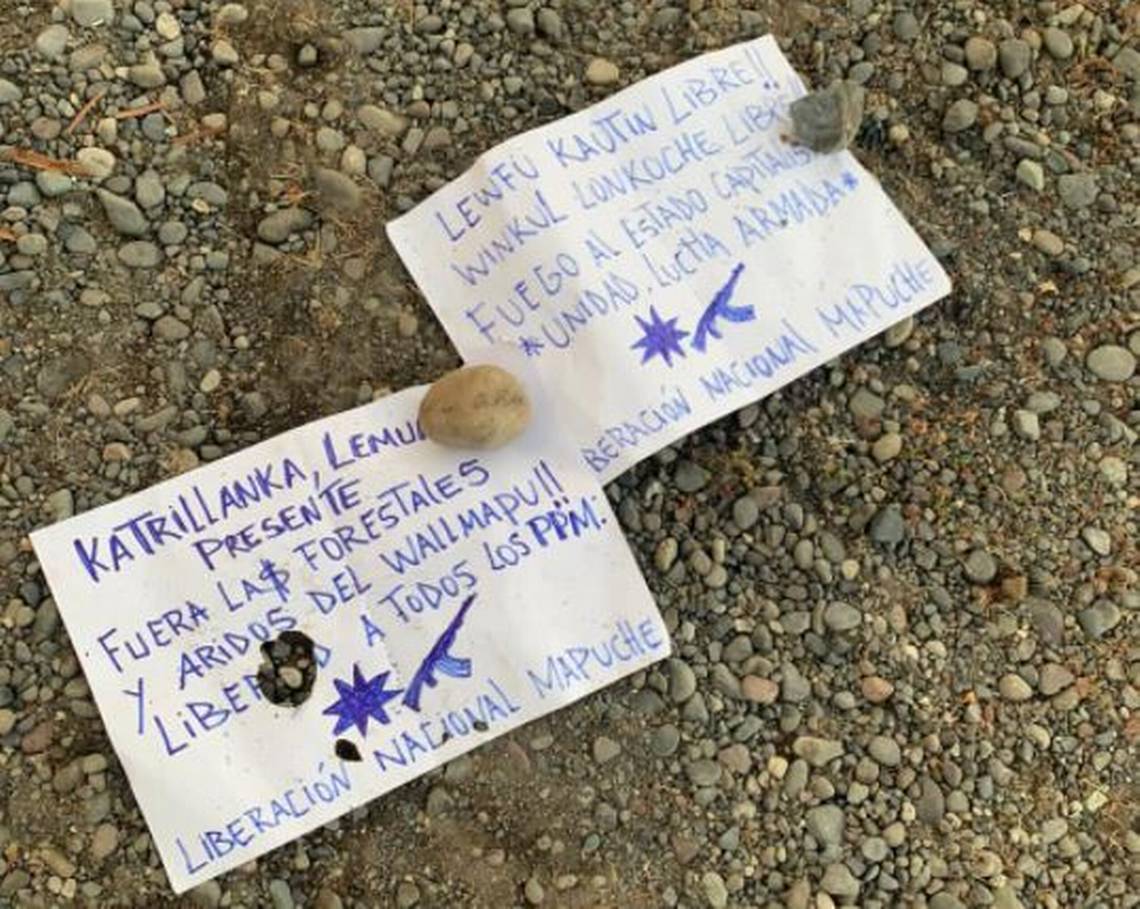 LEWFU KAUTIN LIBRE!!
WINKUL LONKOCHE
FUEGO AL ESTADO
*UNIDAD, LUCHA ARMADA*
NACIONAL MAPUCHE
KATRILLANKA,
PRESENTE
FUERA LA$ FORESTALES
Y ARIDOS DEL WALLMAPU!!
A TODOS LOS PPM:
LIBERACIÓN NACIONAL MAPUCHE